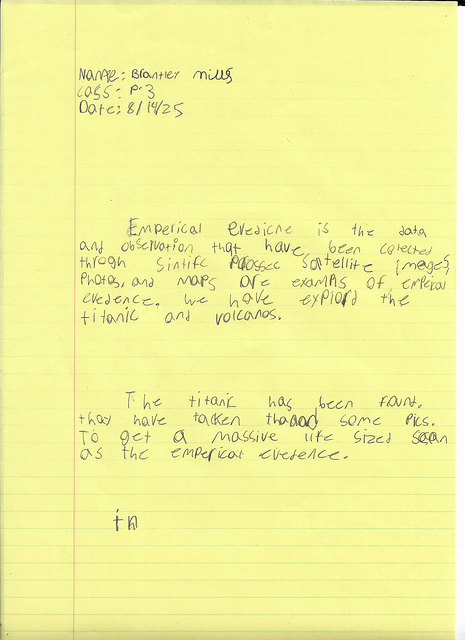 Name: Brantley mills
Cass: P.3
Date: 8/14/25
Emperical Evedicne is the data
and observation that have been colected
throgh sintifc satellite images,
Photos, and maps are exampls of emperal
evedence. we have expiord the
titanic and volcanos.
The titanic has been fount.
thay have tacken some Pics.
To get a massive life sized scan
as the emperical evedence.
in